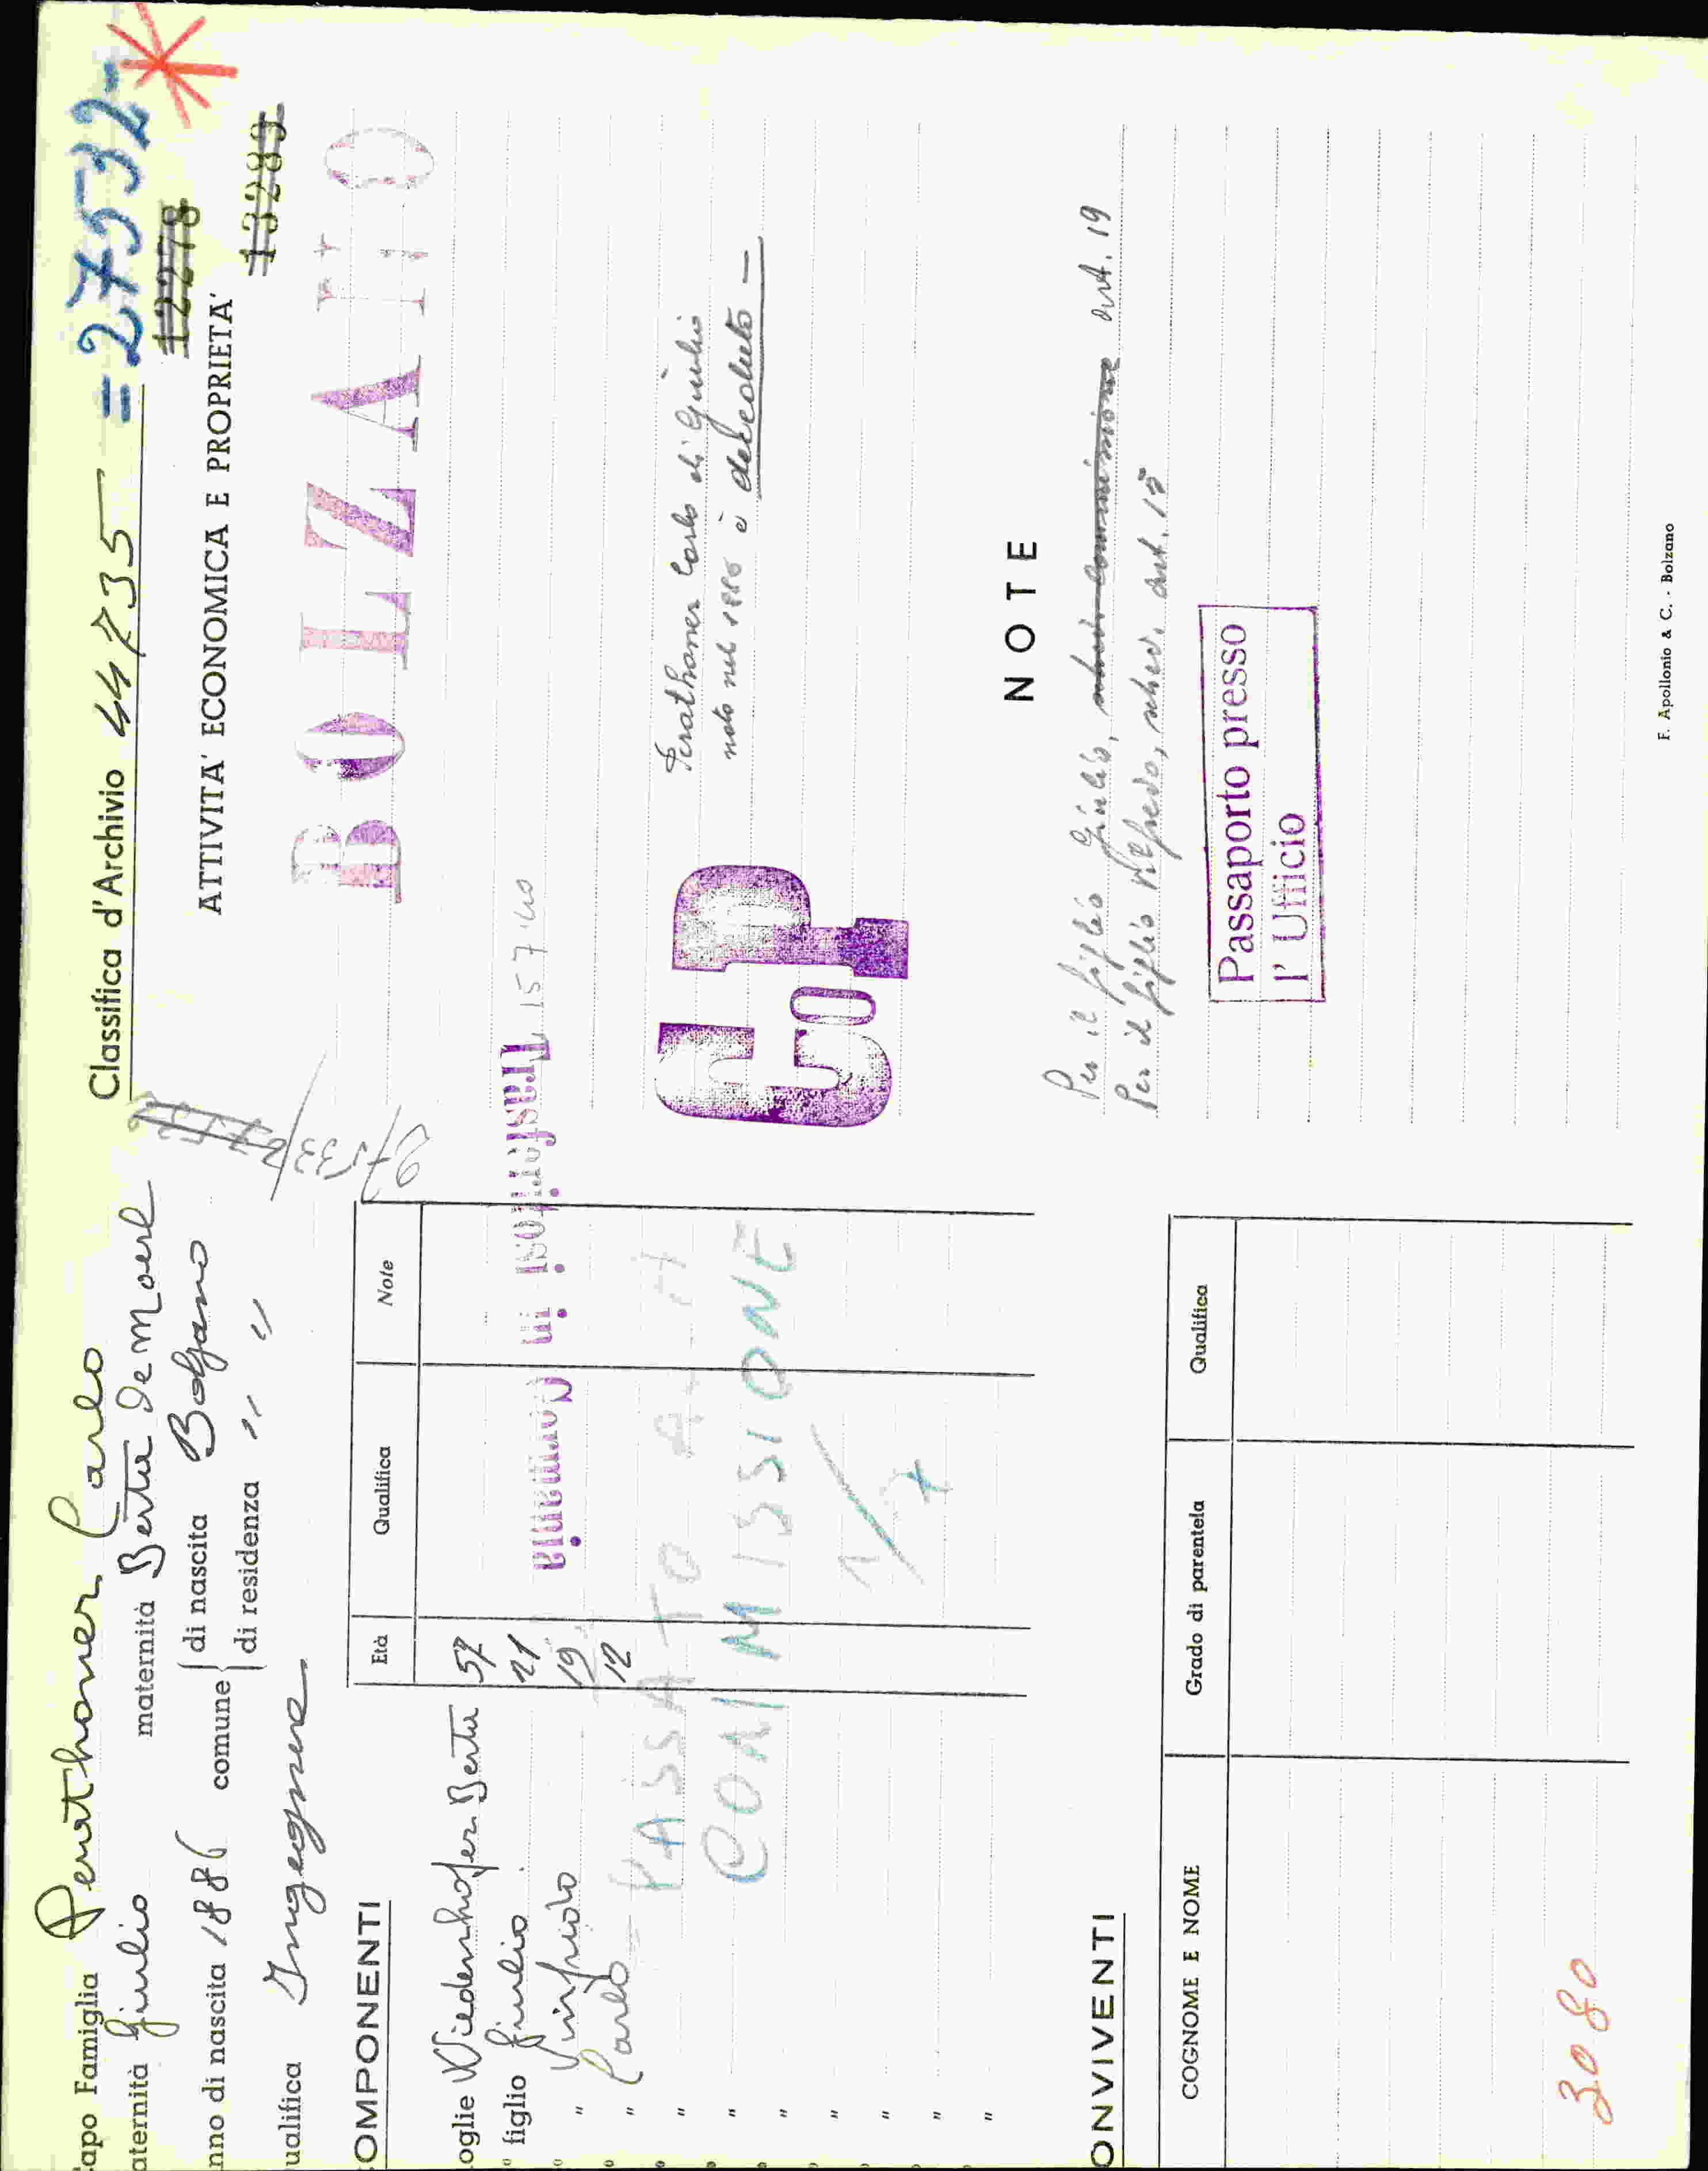 Capo Famiglia Perathoner Carlo
aternità Giulio maternità Berta de Moerl
nno di nascita 1886 comune di nascita Bolzano
di residenza " "
ualifica Ingegnere
OMPONENTI
Età
Qualifica
Note
oglie Wiedenhofer Berta 57
figlio Giulio 21
" Vinfrido 19
" Carlo 12
"
"
"
"
"
"
"
Germania
in
Trasferitosi
15 7 40
PASSATO ALLA
COMMISSIONE
1/7
ONVIVENTI
COGNOME E NOME
Grado di parentela
Qualifica
3080
Classifica d'Archivio 44735 = 27532-
12278
13289
27533
ATTIVITA' ECONOMICA E PROPRIETA'
BOLZANO
Perathoner Carlo di Giulio
nato nel 1886 è deceduto -
NOTE
Per il figlio Giulio, art. 19
Per il figlio sched. art. 15
Passaporto presso
l' Ufficio
F. Apollonio & C. - Bolzano